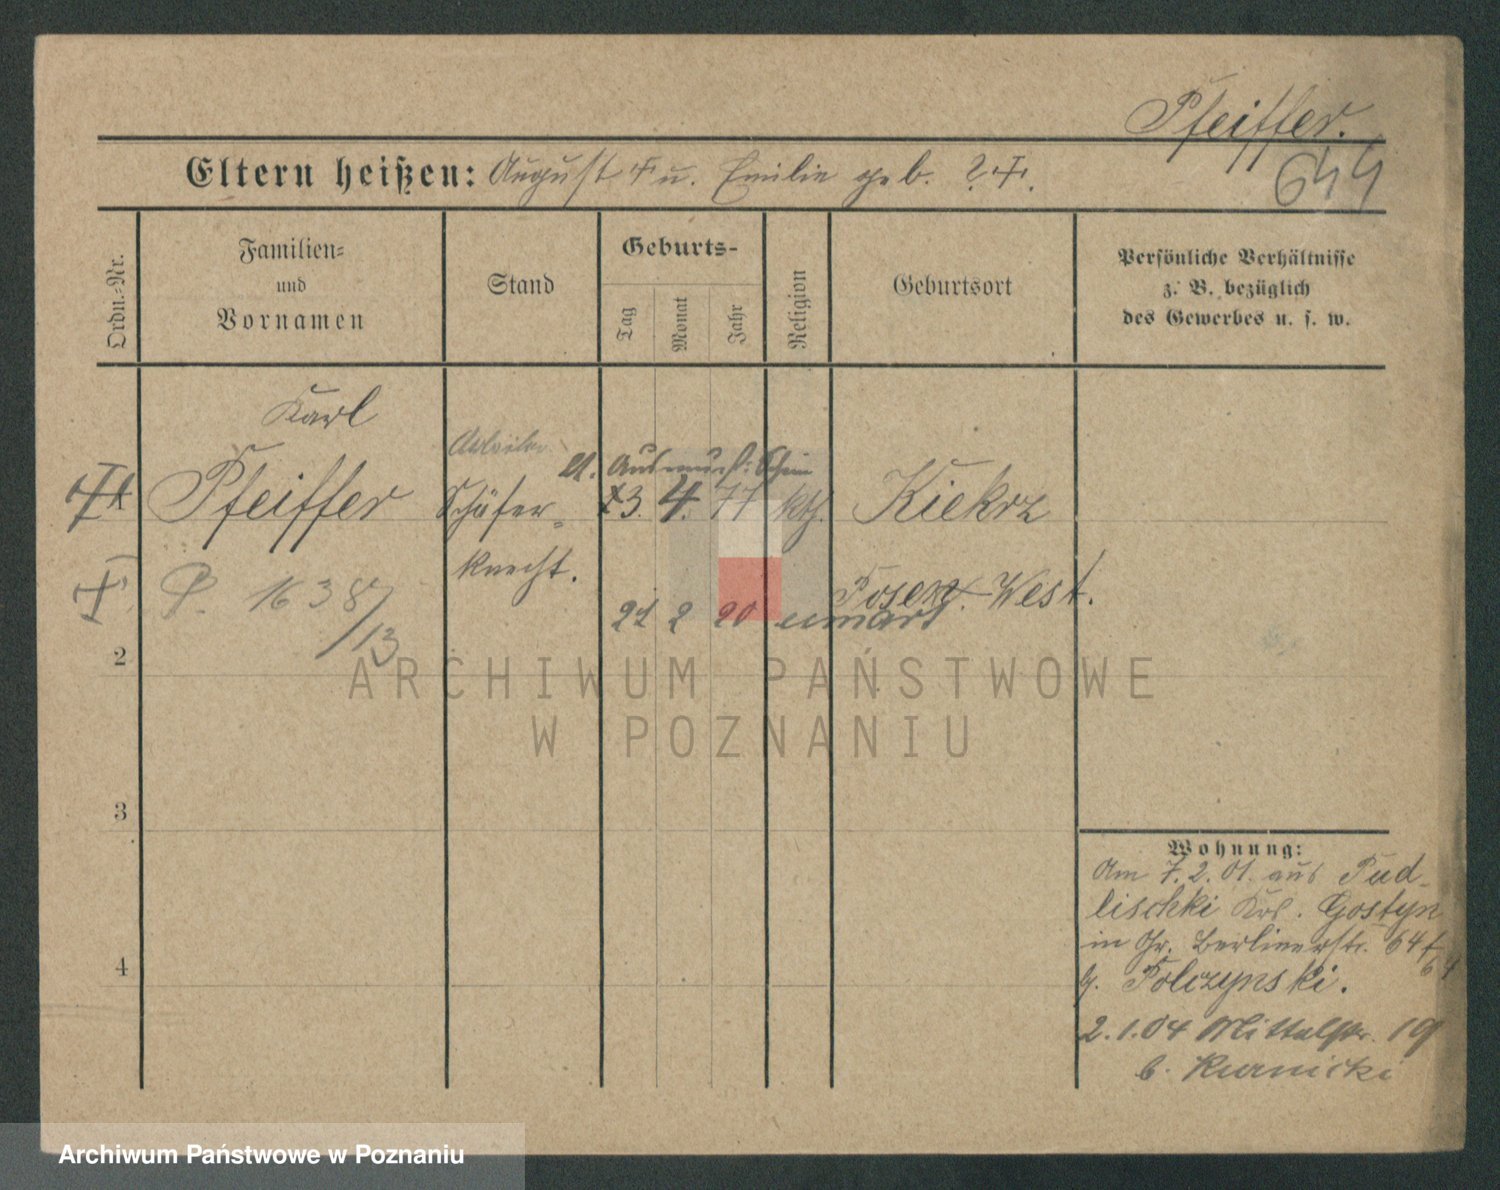 Pfeiffer.
644
Eltern heißen: August † u. Emilie geb. ? †.
Ordn.-Nr.
Familien-
und
Vornamen
Stand
Geburts-
Tag
Monat
Jahr
Religion
Geburtsort
Persönliche Verhältnisse
z. B. bezüglich
des Gewerbes u. s. w.
Karl
Arbeiter
Pfeiffer
Schäfer-
knecht.
23. 4. 77 kth. Kiekrz
Posen. West.
P. 1638/13
21 2 20
2
3
4
Wohnung:
Am 7.2.01. aus Pud-
lischki Krs. Gostyn
in Gr. Berlinerstr. 64
b. Polczynski.
2.1.04 Mittelstr. 19
b. Kurnicki
ARCHIWUM PAŃSTWOWE
W POZNANIU
Archiwum Państwowe w Poznaniu